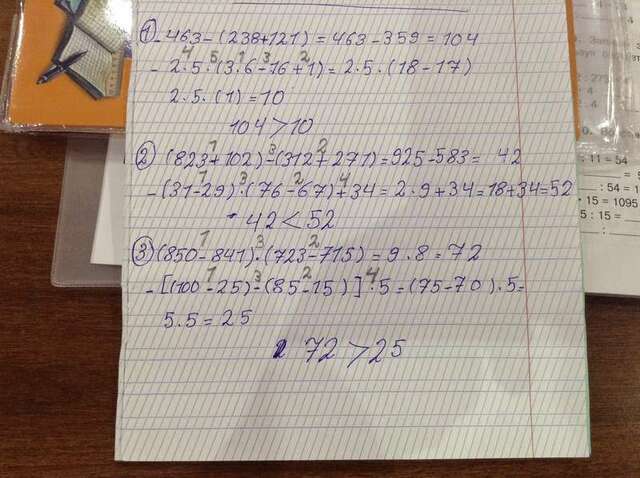 ① - 463 - (238+121) = 463 - 359 = 104
- 2 · 5 · (3 · 6 - 16 + 1) = 2 · 5 · (18 - 17)
2 · 5 · (1) = 10
104 > 10
② (823 + 102) - (312 + 271) = 925 - 583 = 42
- (31 - 29) · (76 - 67) + 34 = 2 · 9 + 34 = 18 + 34 = 52
42 < 52
③ (850 - 841) · (723 - 715) = 9 · 8 = 72
- [(100 - 25) - (85 - 15)] · 5 = (75 - 70) · 5 =
5 · 5 = 25
72 > 25
: 11 = 54
: 54 = 1
· 15 = 1095
: 15 =